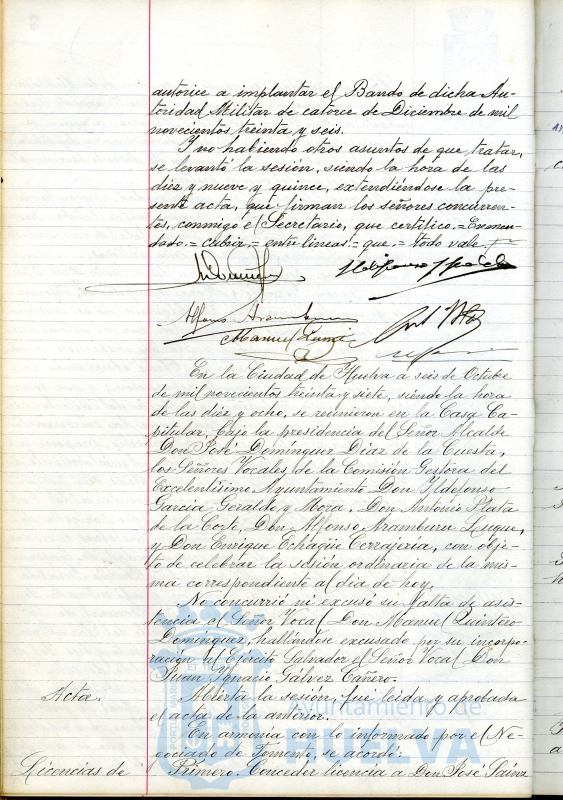 autorice a implantar el Bando de dicha Au-
toridad Militar de catorce de Diciembre de mil
novecientos treinta y seis.
Y no habiendo otros asuntos de que tratar,
se levantó la sesión, siendo la hora de las
diez y nueve y quince, extendiéndose la pre-
sente acta, que firman los señores concurren-
tes, conmigo el Secretario, que certifico.=Enmen-
dado.= cubrir.= entre lineas.= que.= todo vale.
En la Ciudad de Huelva a seis de Octubre
de mil novecientos treinta y siete, siendo la hora
de las diez y ocho, se reunieron en la Casa Ca-
pitular, bajo la presidencia del Señor Alcalde
Don José Domínguez Díaz de la Cuesta,
los Señores Vocales de la Comisión Gestora del
Excelentísimo Ayuntamiento Don Yldefonso
García Geraldo y Mora, Don Antonio Plata
de la Corte, Don Alfonso Aramburu Luque,
y Don Enrique Echagüe Cerrajería, con obje-
to de celebrar la sesión ordinaria de la mis-
ma correspondiente al día de hoy.
No concurrió ni excusó su falta de asis-
tencia el Señor Vocal Don Manuel Quintero
Domínguez, hallándose excusado por su incorpo-
ración al Ejército Salvador el Señor Vocal Don
Juan Ygnacio Gálvez Cañero.
Acta.
Abierta la sesión, fué leida y aprobada
el acta de la anterior.
En armonía con lo informado por el Ne-
gociado de Fomento, se acordó:
Licencias de
Primero. Conceder licencia a Don José Sáinz
Ayuntamiento de
HUELVA